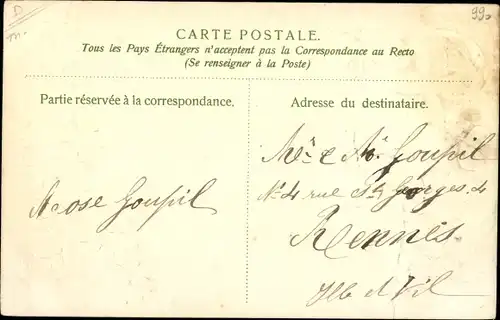 D
m.
99.
CARTE POSTALE.
Tous les Pays Étrangers n'acceptent pas la Correspondance au Recto
(Se renseigner à la Poste)
Partie réservée à la correspondance.
Adresse du destinataire.
Goupil
Goupil
No 4 rue St Georges. 4
Rennes
Ille et Vil